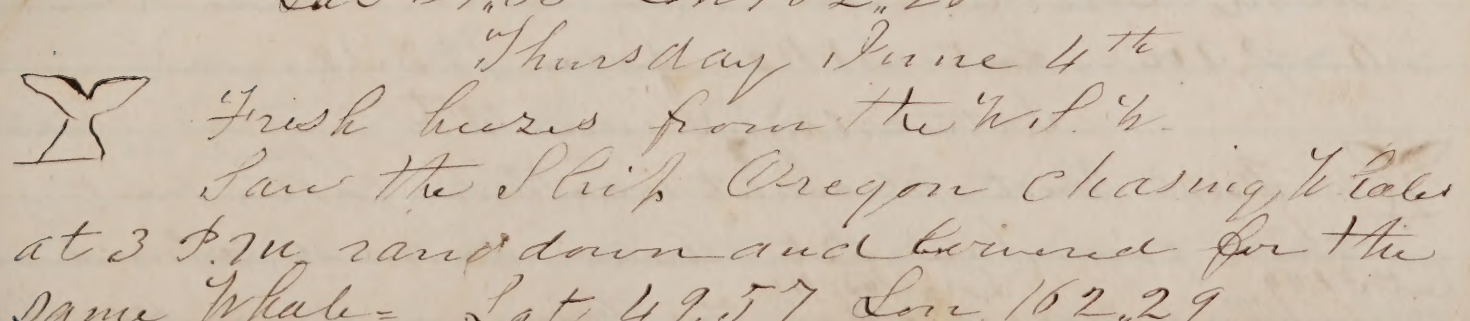 Thursday June 4th
Fresh breezes from the W.S.W.
Saw the Ship Oregon chasing Whales
at 3 P.M. ran down and lowered for the
same Whale= Lat, 49,57 Lon, 162,,29